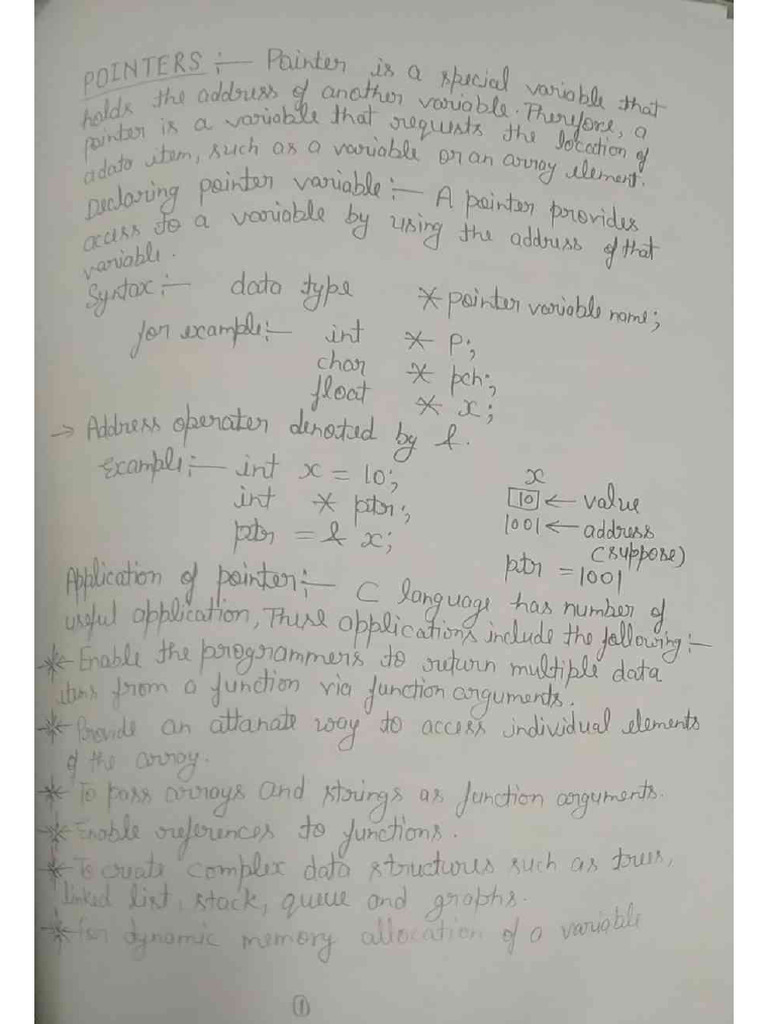 POINTERS :- Pointer is a special variable that
holds the address of another variable. Therefore, a
pointer is a variable that requests the location of
a data item, such as a variable or an array element.
Declaring pointer variable :- A pointer provides
access to a variable by using the address of that
variable.
Syntax :- data type * pointer variable name;
for example :- int * P;
char * pch;
float * x;
→ Address operater denoted by &.
Example :- int x = 10;
int * ptr;
ptr = & x;
x
10 ← value
1001 ← address
(suppose)
ptr = 1001
Application of pointer :- C language has number of
useful application, These applications include the following :-
* Enable the programmers to return multiple data
items from a function via function arguments.
* Provide an attanate way to access individual elements
of the array.
* To pass arrays and strings as function arguments.
* Enable references to functions.
* To create complex data structures such as trees,
linked list, stack, queue and graphs.
* For dynamic memory allocation of a variable
1